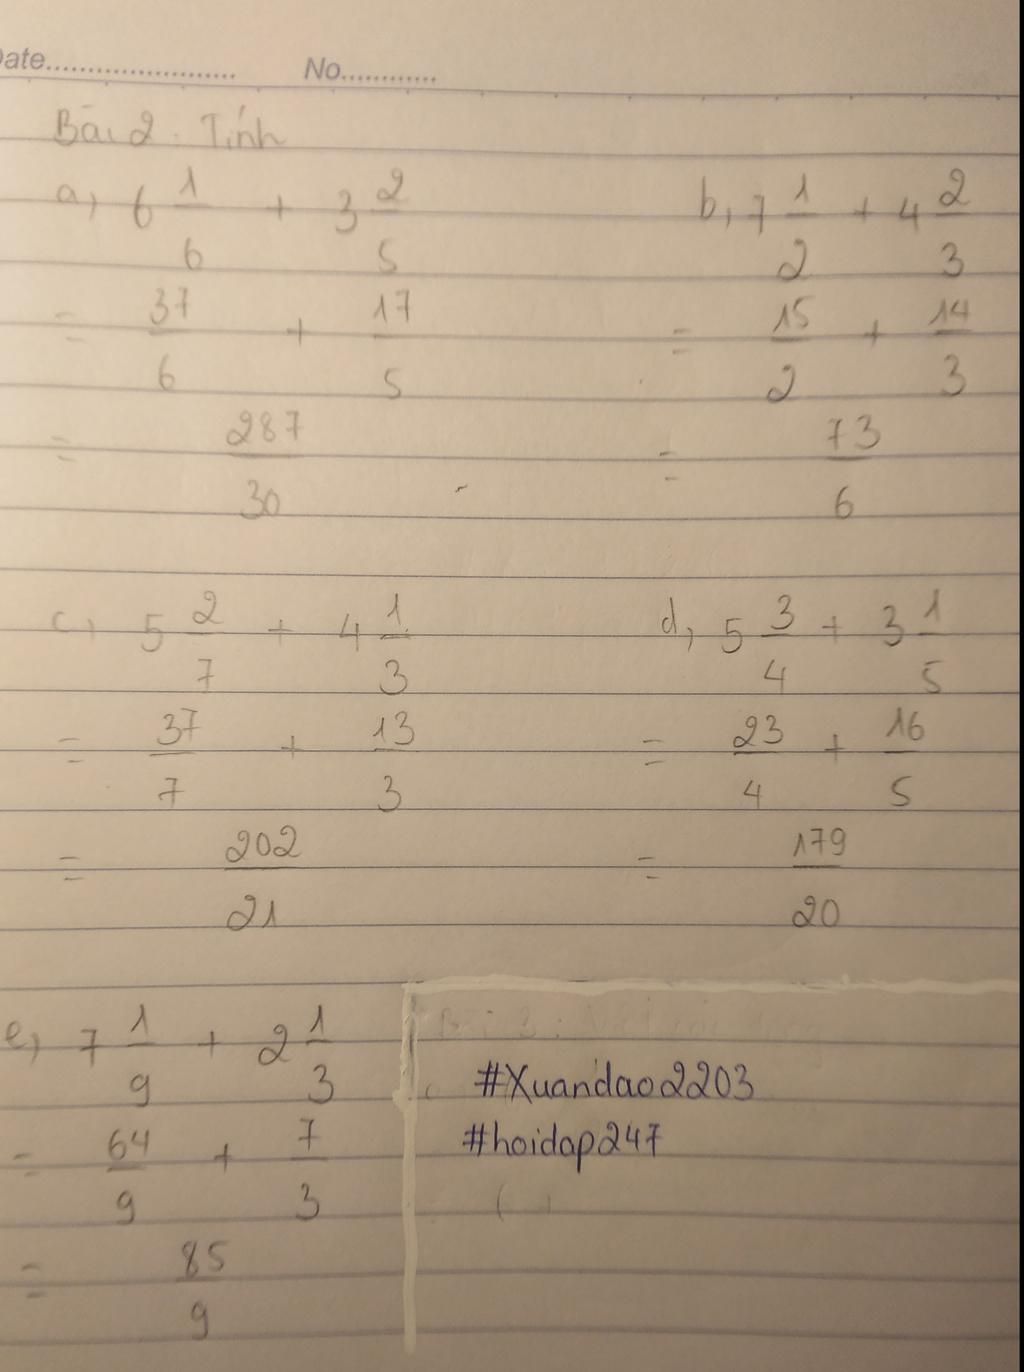 Date.................... No............
Bài 2 : Tính
a, 6 1/6 + 3 2/5
= 37/6 + 17/5
= 287/30
b, 7 1/2 + 4 2/3
= 15/2 + 14/3
= 73/6
c, 5 2/7 + 4 1/3
= 37/7 + 13/3
= 202/21
d, 5 3/4 + 3 1/5
= 23/4 + 16/5
= 179/20
e, 7 1/9 + 2 1/3
= 64/9 + 7/3
= 85/9
Bài 3 :
#Xuandao2203
#hoidap247